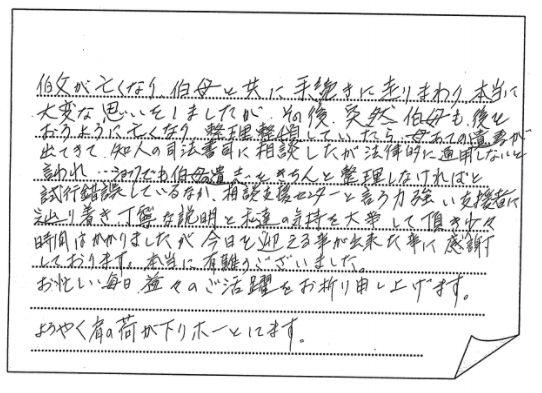 伯父が亡くなり、伯母と共に手続きに走りまわり本当に
大変な思いをしましたが、その後、突然伯母も後を
おうように亡くなり、整理整頓していたら、母あての遺書が
出てきて、知人の司法書司に相談したが法律的に通用しないと
言われ…でも伯母の遺きちんと整理しなければと
試行錯誤しているなか、相談支援センターと言う力強い支援者に
辿り着き丁寧な説明と私達の気持を大事にして頂き少々
時間はかかりましたが今日を迎える事が出来た事に感謝
しております。本当に有難うございました。
お忙しい毎日益々のご活躍をお祈り申し上げます。
ようやく肩の荷が下りホーとしてます。